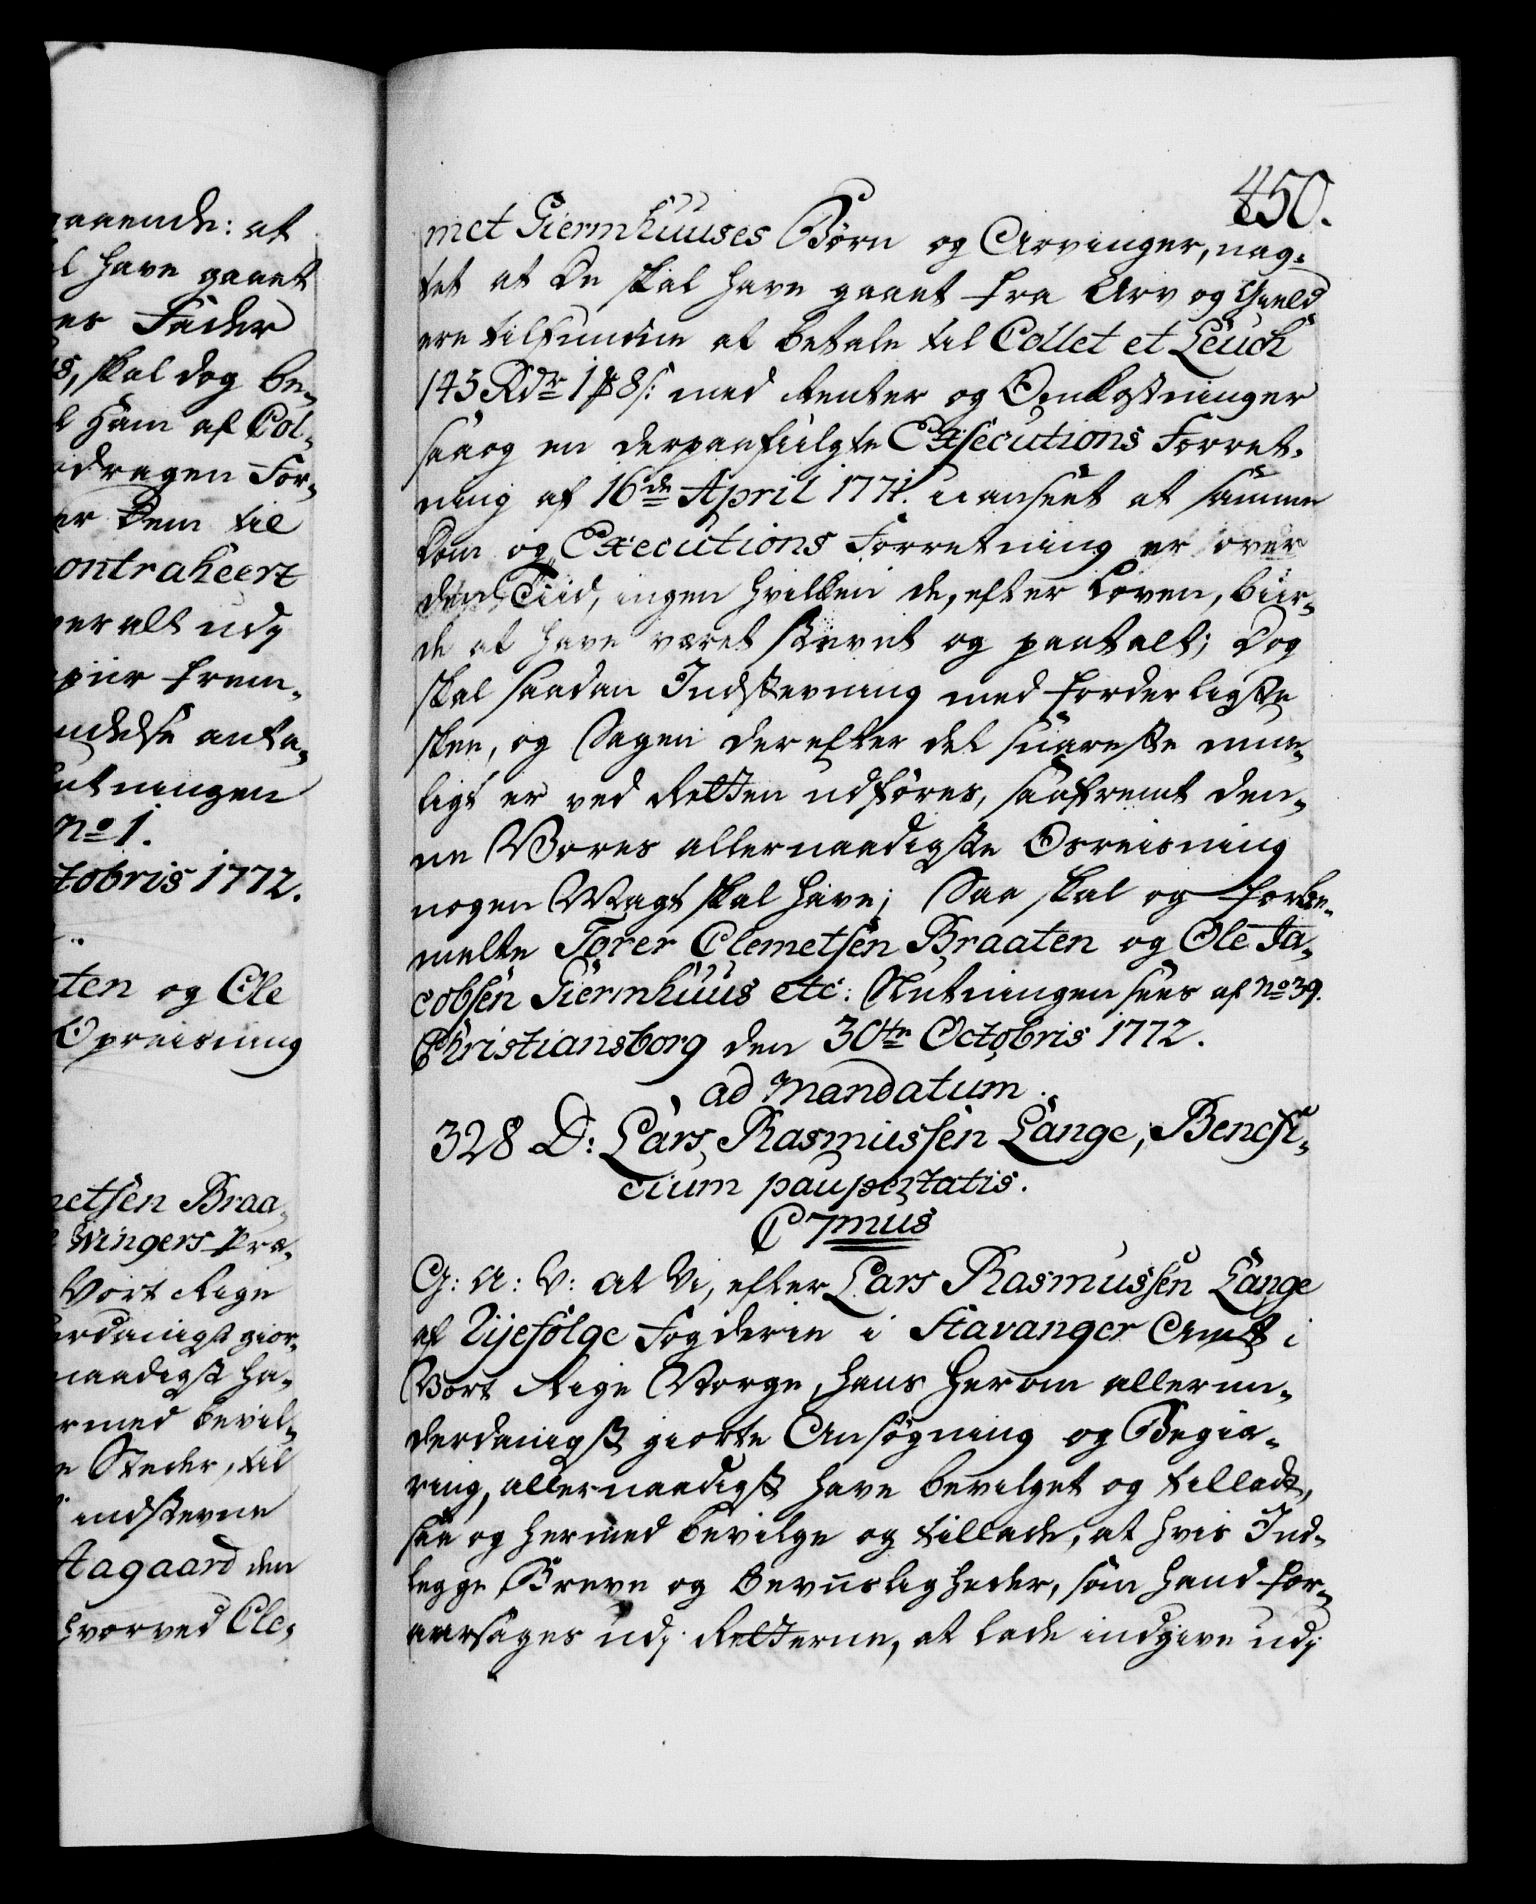 aaende: at
l have gaaet
es Fader
s, skal dog be-
l ham af Col-
odragen For-
er dem til
ontraheert
er alt udj
piir frem-
ndelse anta-
utningen
No 1.
tobris 1772.
ten og Ole
Opreisning
netsen Braa-
Wingers Præ-
Vort Rige
rdanigst gior-
naadigst ha-
rmed bevil-
e Steder, til
indstevne
Aagaard den
hvorved Cle-
450.
met Giermhuuses Børn og Arvinger, uag-
tet at de skal have gaaet fra Arv og Gield
ere tilfundne at betale til Collet et Leuch
145 Rdr 1 # 8 s: med Renter og Omkostninger
saa og en derpaafulgte Exsecutions Forret-
ning af 16de April 1771. uanseet at samme
Dom og Executions Forretning er over
den Tiid, ingen hvilken de, efter Loven, bur-
de at have været stevnt og paatalt; dog
skal saadan Indstevning med forderligste
skee, og Sagen derefter det snareste mue-
ligt er ved Retten udføres, saafremt den-
ne Vores allernaadigste Opreisning
nogen Magt skal have; Saa skal og forbe-
melte Torer Clemetsen Braaten og Ole Ja-
cobsen Giermhuus etc: Slutningen sees af No 39.
Christiansborg den 30te Octobris 1772.
ad Mandatum.
328 D: Lars Rasmussen Lange, Benefi-
cium paupertatis.
C 7mus
G: A: V: at Vi, efter Lars Rasmussen Lange
af Ryefølge Fogderie i Stavanger Amt i
Vort Rige Norge, hans herom allerun-
derdanigst giorte Ansøgning og Begiæ-
ring, allernaadigst have bevilget og tilladt,
saa og hermed bevilge og tillade, at hvis Ind-
legge, Breve og Beviisligheder, som hand for-
aarsages udj Retterne, at lade indgive udj